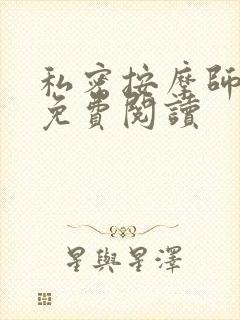 私密按摩師
免費閱讀
星與星澤